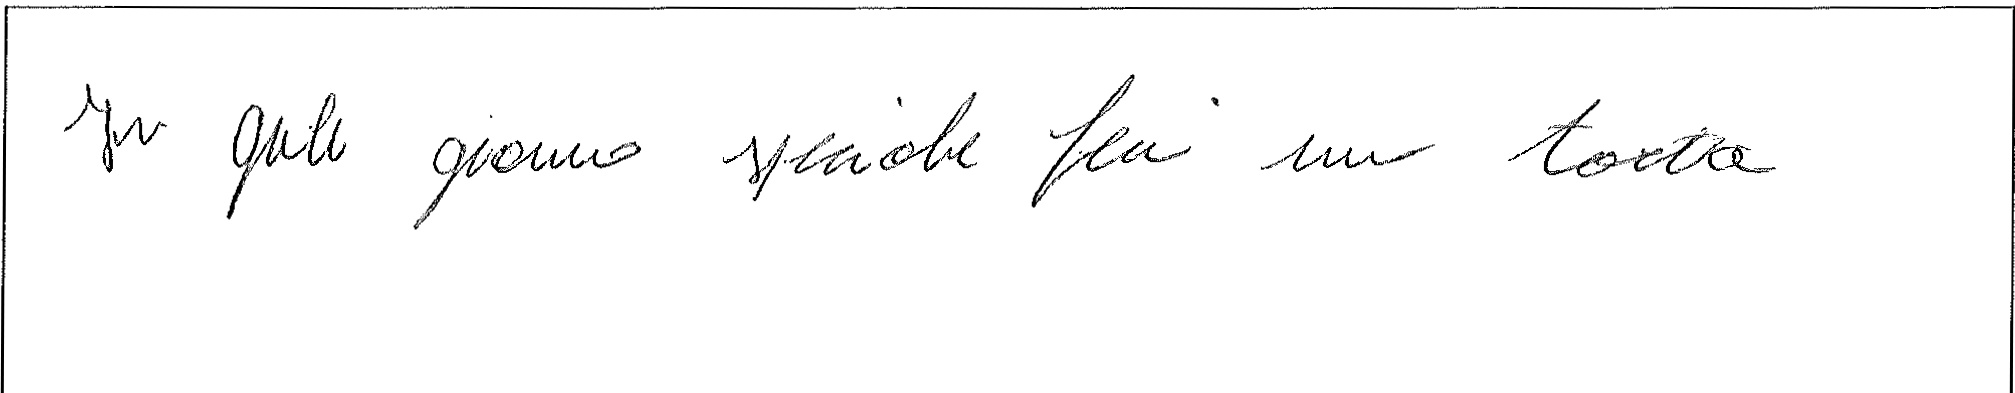 In quel giorno speciale feci una torta